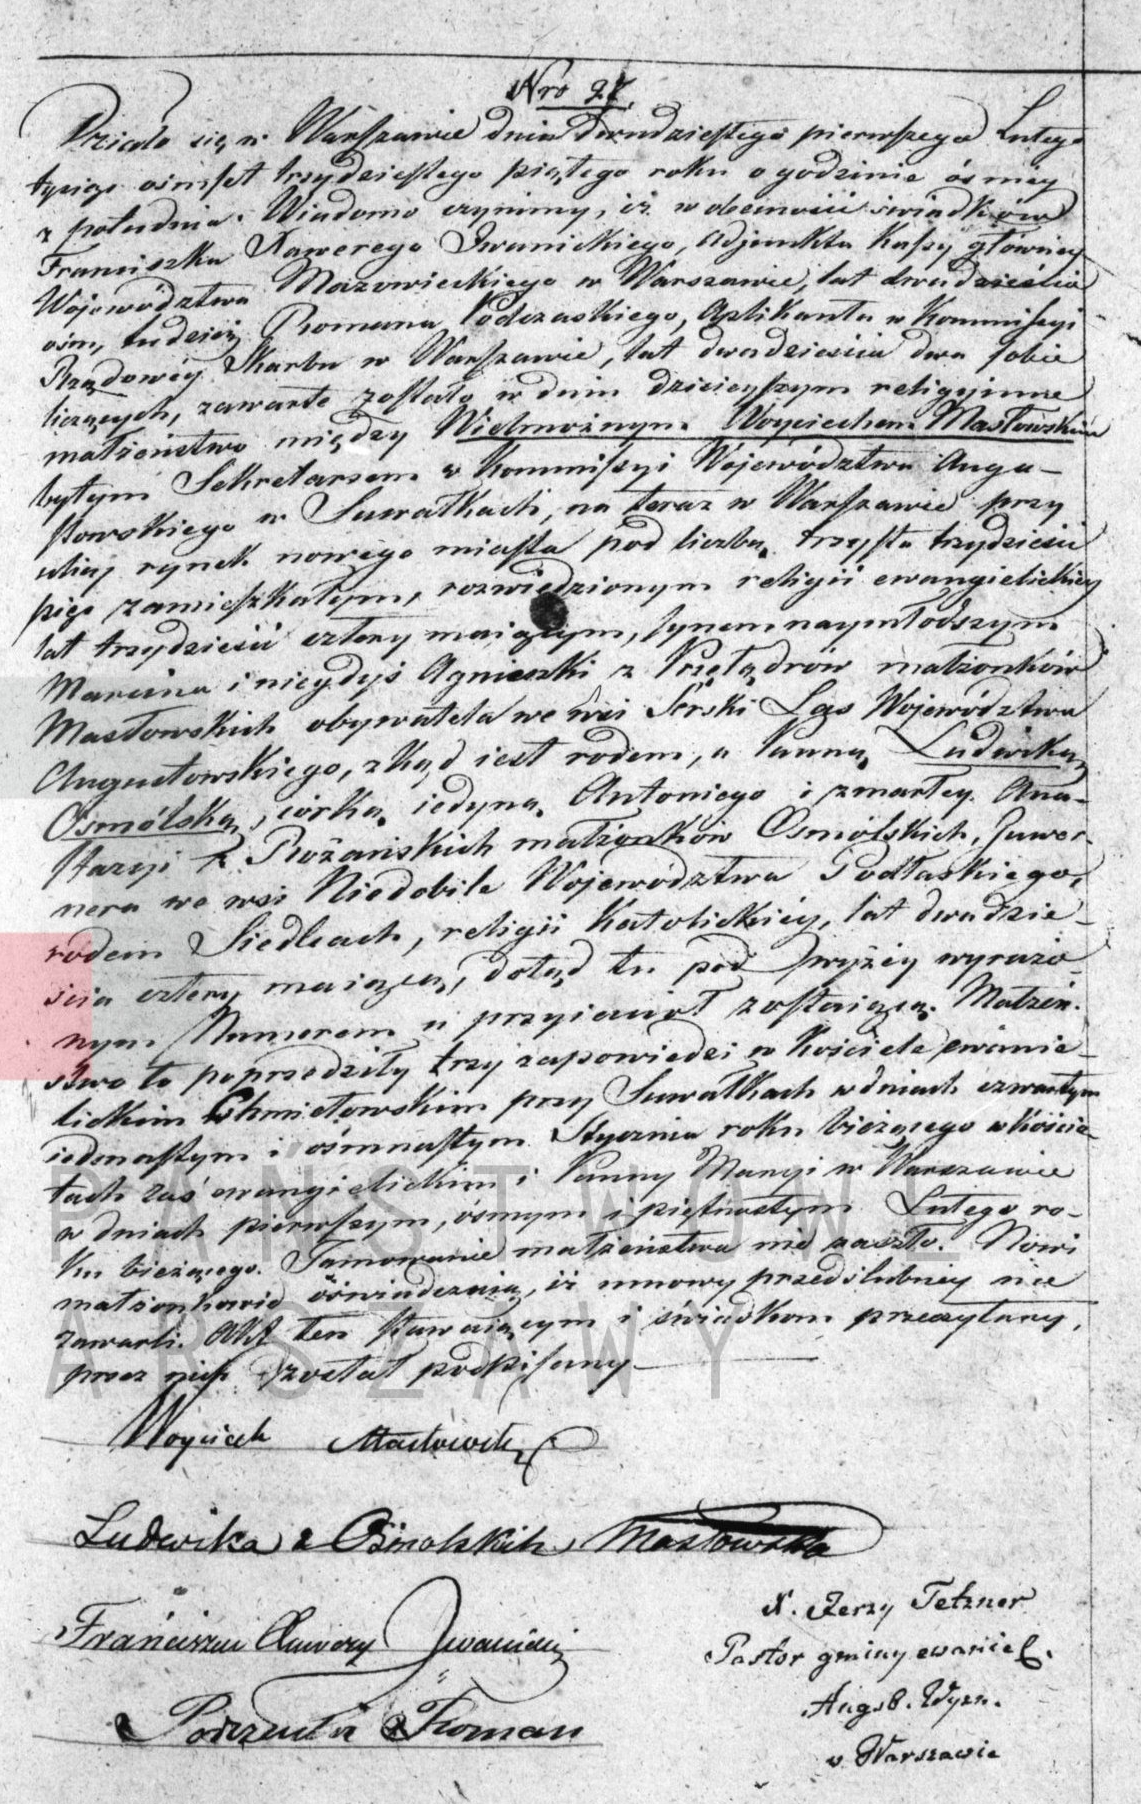 Nro 27.
Działo się w Warszawie dnia dwudziestego pierwszego Lutego
tysiąc ośmset trzydziestego piątego roku o godzinie ósmey
z południa. Wiadomo czynimy, iż w obecności świadków
Franciszka Xawerego Iwanickiego, Adjunkta Kassy główney
Województwa Mazowieckiego w Warszawie, lat dwadzieścia
ośm, tudzież Romana Podczaskiego, Aplikanta w Kommissyi
Rządowéy Skarbu w Warszawie, lat dwadzieścia dwa sobie
liczących, zawarte zostało w dniu dzisieyszym religijne
małżeństwo między Wielmożnym Woyciechem Masłowskim
byłym Sekretarzem w Kommissyi Województwa Augu-
stowskiego w Suwałkach, na teraz w Warszawie przy
ulicy rynek nowego miasta pod liczbą trzysta trzydzieści
pięć zamieszkałym, rozwiedzionym religii ewangielickiey
lat trzydzieści cztery maiącym, synem naymłodszym
Marcina i niegdyś Agnieszki z Przełądrów małżonków
Masłowskich obywatela we wsi Serski Las Województwa
Augustowskiego, zkąd iest rodem, a Panną Ludwiką
Osmólską, córką iedyną Antoniego i zmarłey Ana-
stazyi z Rożańskich małżonków Osmólskich, Guwer-
nera we wsi Niedobile Województwa Podlaskiego,
rodem Siedlcach, religii Katolickiéy, lat dwadzie-
ścia cztery maiącą, dotąd tu pod wyżéy wyrażo-
nym Numerem u przyiaciół zostaiącą. Małżeń-
stwo to poprzedziły trzy zapowiedzi w Kościele ewanie-
lickim Chmielowskim przy Suwałkach w dniach czwartym
iedenastym i ośmnastym Stycznia roku bieżącego w Kościo-
łach zaś ewangielickim i Panny Maryi w Warszawie
w dniach pierwszym, ósmym i piętnastym Lutego ro-
ku bieżącego. Tamowanie małżeństwa nie zaszło. Nowi
małżonkowie oświadczaią, iż umowy przedślubney nie
zawarli. Akt ten stawaiącym i świadkom przeczytany,
przez nich został podpisany.
Woyciech Masłowski
Ludwika z Osmolskich Masłowska
Franciszek Xawery Iwanicki
Podczaski Roman
X. Jerzy Tetzner
Pastor gminy ewaniel.
Augsb. Wyzn.
w Warszawie
PAŃSTWOWE
ARSZAWY